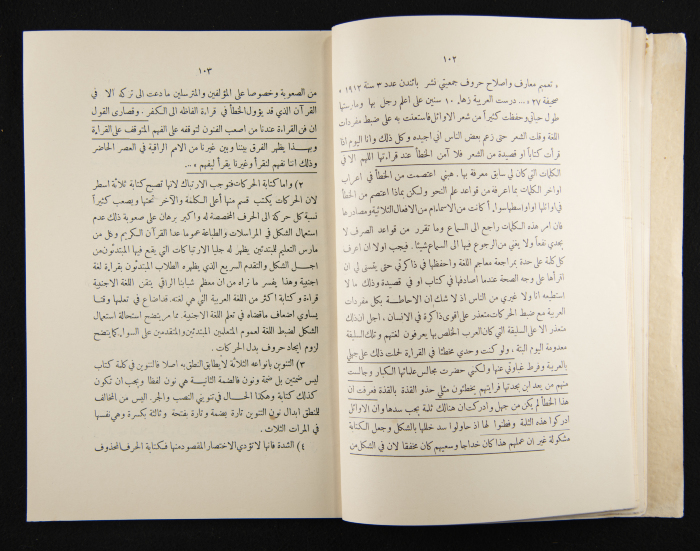 ١٠٢
« تعميم معارف واصلاح حروف جمعيتي نشر باتندن عدد ٣ سنة ١٩١٢ »
صحيفة ٢٧ » ... درست العربية زهاء ١٠ سنين على اعلم رجل بها ومارستها
طول حياتي وحفظت كثيراً من شعر الاوائل فاستعنت به على ضبط مفردات
اللغة وقلت الشعر حتى زعم بعض الناس اني اجيده وكل ذلك وانا اليوم اذا
قرأت كتاباً او قصيدة من الشعر فلا آمن الخطأ عند قراءتها اللهم الا في
الكلمات التي كان لي سابق معرفة بها . هبني اعتصمت من الخطأ في اعراب
اواخر الكلمات بما اعرفه من قواعد علم النحو ولكن بماذا اعتصم من الخطأ
في اوائلها او اواسطها سواءً أكانت من الاسماء ام من الافعال الثلاثية ومصادرها
فان امر هذه الكلمات راجع الى السماع وما تقرر من قواعد الصرف لا
يجدي نفعاً ولا يغني من الرجوع فيها الى السماع شيئاً . فيجب اولا ان اعرف
كل كلمة على حدة بمراجعة معاجم اللغة واحفظها في ذاكرتي حتى يتسنى لي ان
اقرأها على وجه الصحة عندما اصادفها في كتاب او في قصيدة وذلك ما لا
استطيعه انا ولا غيري من الناس اذ لا شك ان الاحاطة بكل مفردات
العربية مع ضبط الحركات متعذر على اقوى ذاكرة في الانسان . اجل ان ذلك
متعذر الا على السليقة التي كان العرب الخلص بها يعرفون لغتهم وتلك السليقة
معدومة اليوم البتة . ولو كنت وحدي مخطئا في القراءة لحملت ذلك على جهلي
بالعربية وفرط غباوتي عنها ولكني حضرت مجالس علمائها الكبار وجالست
منهم من يعد ابن بجدتها فرأيتهم يخطئون مثلي حذو القذة بالقذة فعرفت ان
هذا الخطأ لم يكن من جهل وادركت ان هنالك ثلمة يجب سدها وان الاوائل
ادركوا هذه الثلمة وفطنوا لها اذ حاولوا سد خللها بالشكل وجعل الكتابة
مشكولة غير ان عملهم هذا كان خداجا وسعيهم كان مخفقا لان في الشكل من
١٠٣
من الصعوبة وخصوصا على المؤلفين والمترسلين ما دعت الى تركه الا في
القرآن الذي قد يؤول الخطأ في قراءة الفاظه الى الكفر . وقصارى القول
ان فن القراءة عندنا من اصعب الفنون لتوقفه على الفهم المتوقف على القراءة
وبهذا يظهر الفرق بيننا وبين غيرنا من الامم الراقية في العصر الحاضر
وذلك اننا نفهم لنقرأ وغيرنا يقرأ ليفهم » ...
٢) واما كتابة الحركات فتوجب الارتباك لانها تصبح كتابة ثلاثة اسطر
لان الحركات يكتب قسم منها أعلى الكلمة والآخر تحتها ويصعب كثيراً
نسبة كل حركة الى الحرف المخصصة له واكبر برهان على صعوبة ذلك عدم
استعمال الشكل في المراسلات والطباعة عموما عدا القرآن الكريم وكل من
مارس التعليم للمبتدئين يظهر له جليا الارتباكات التي يقع فيها المبتدئون من
اجل الشكل والتقدم السريع الذي يظهره الطلاب المبتدئون بقراءة لغة
اجنبية وهذا يفسر ما نراه من ان معظم شباننا الراقي يتقن اللغة الاجنبية
قراءة وكتابة اكثر من اللغة العربية التي هي لغته فداضاع في تعلمها وقتا
يساوي اضعاف ماقضاه في تعلم اللغة الاجنبية. مما مر يتضح استحالة استعمال
الشكل لضبط اللغة لعموم المتعلمين المبتدئين والمتقدمين على السواء كما يتضح
لزوم ايجاد حروف بدل الحركات .
٣) التنوين بانواعه الثلاثة لا يطابق النطق به اصلا فالتنوين في كلمة كتاب
ليس ضمتين بل ضمة ونون فالضمة الثانية هي نون لفظا ويجب ان تكون
كذلك كتابة وهكذا الحال في تنويني النصب والجر. اليس من المخالف
للنطق ابدال نون التنوين تارة بضمة وتارة بفتحة وثالثة بكسرة وهي نفسها
في المرات الثلاث .
٤) الشدة فانها لا تؤدي الاختصار المقصود منها فكتابة الحرف المحذوف